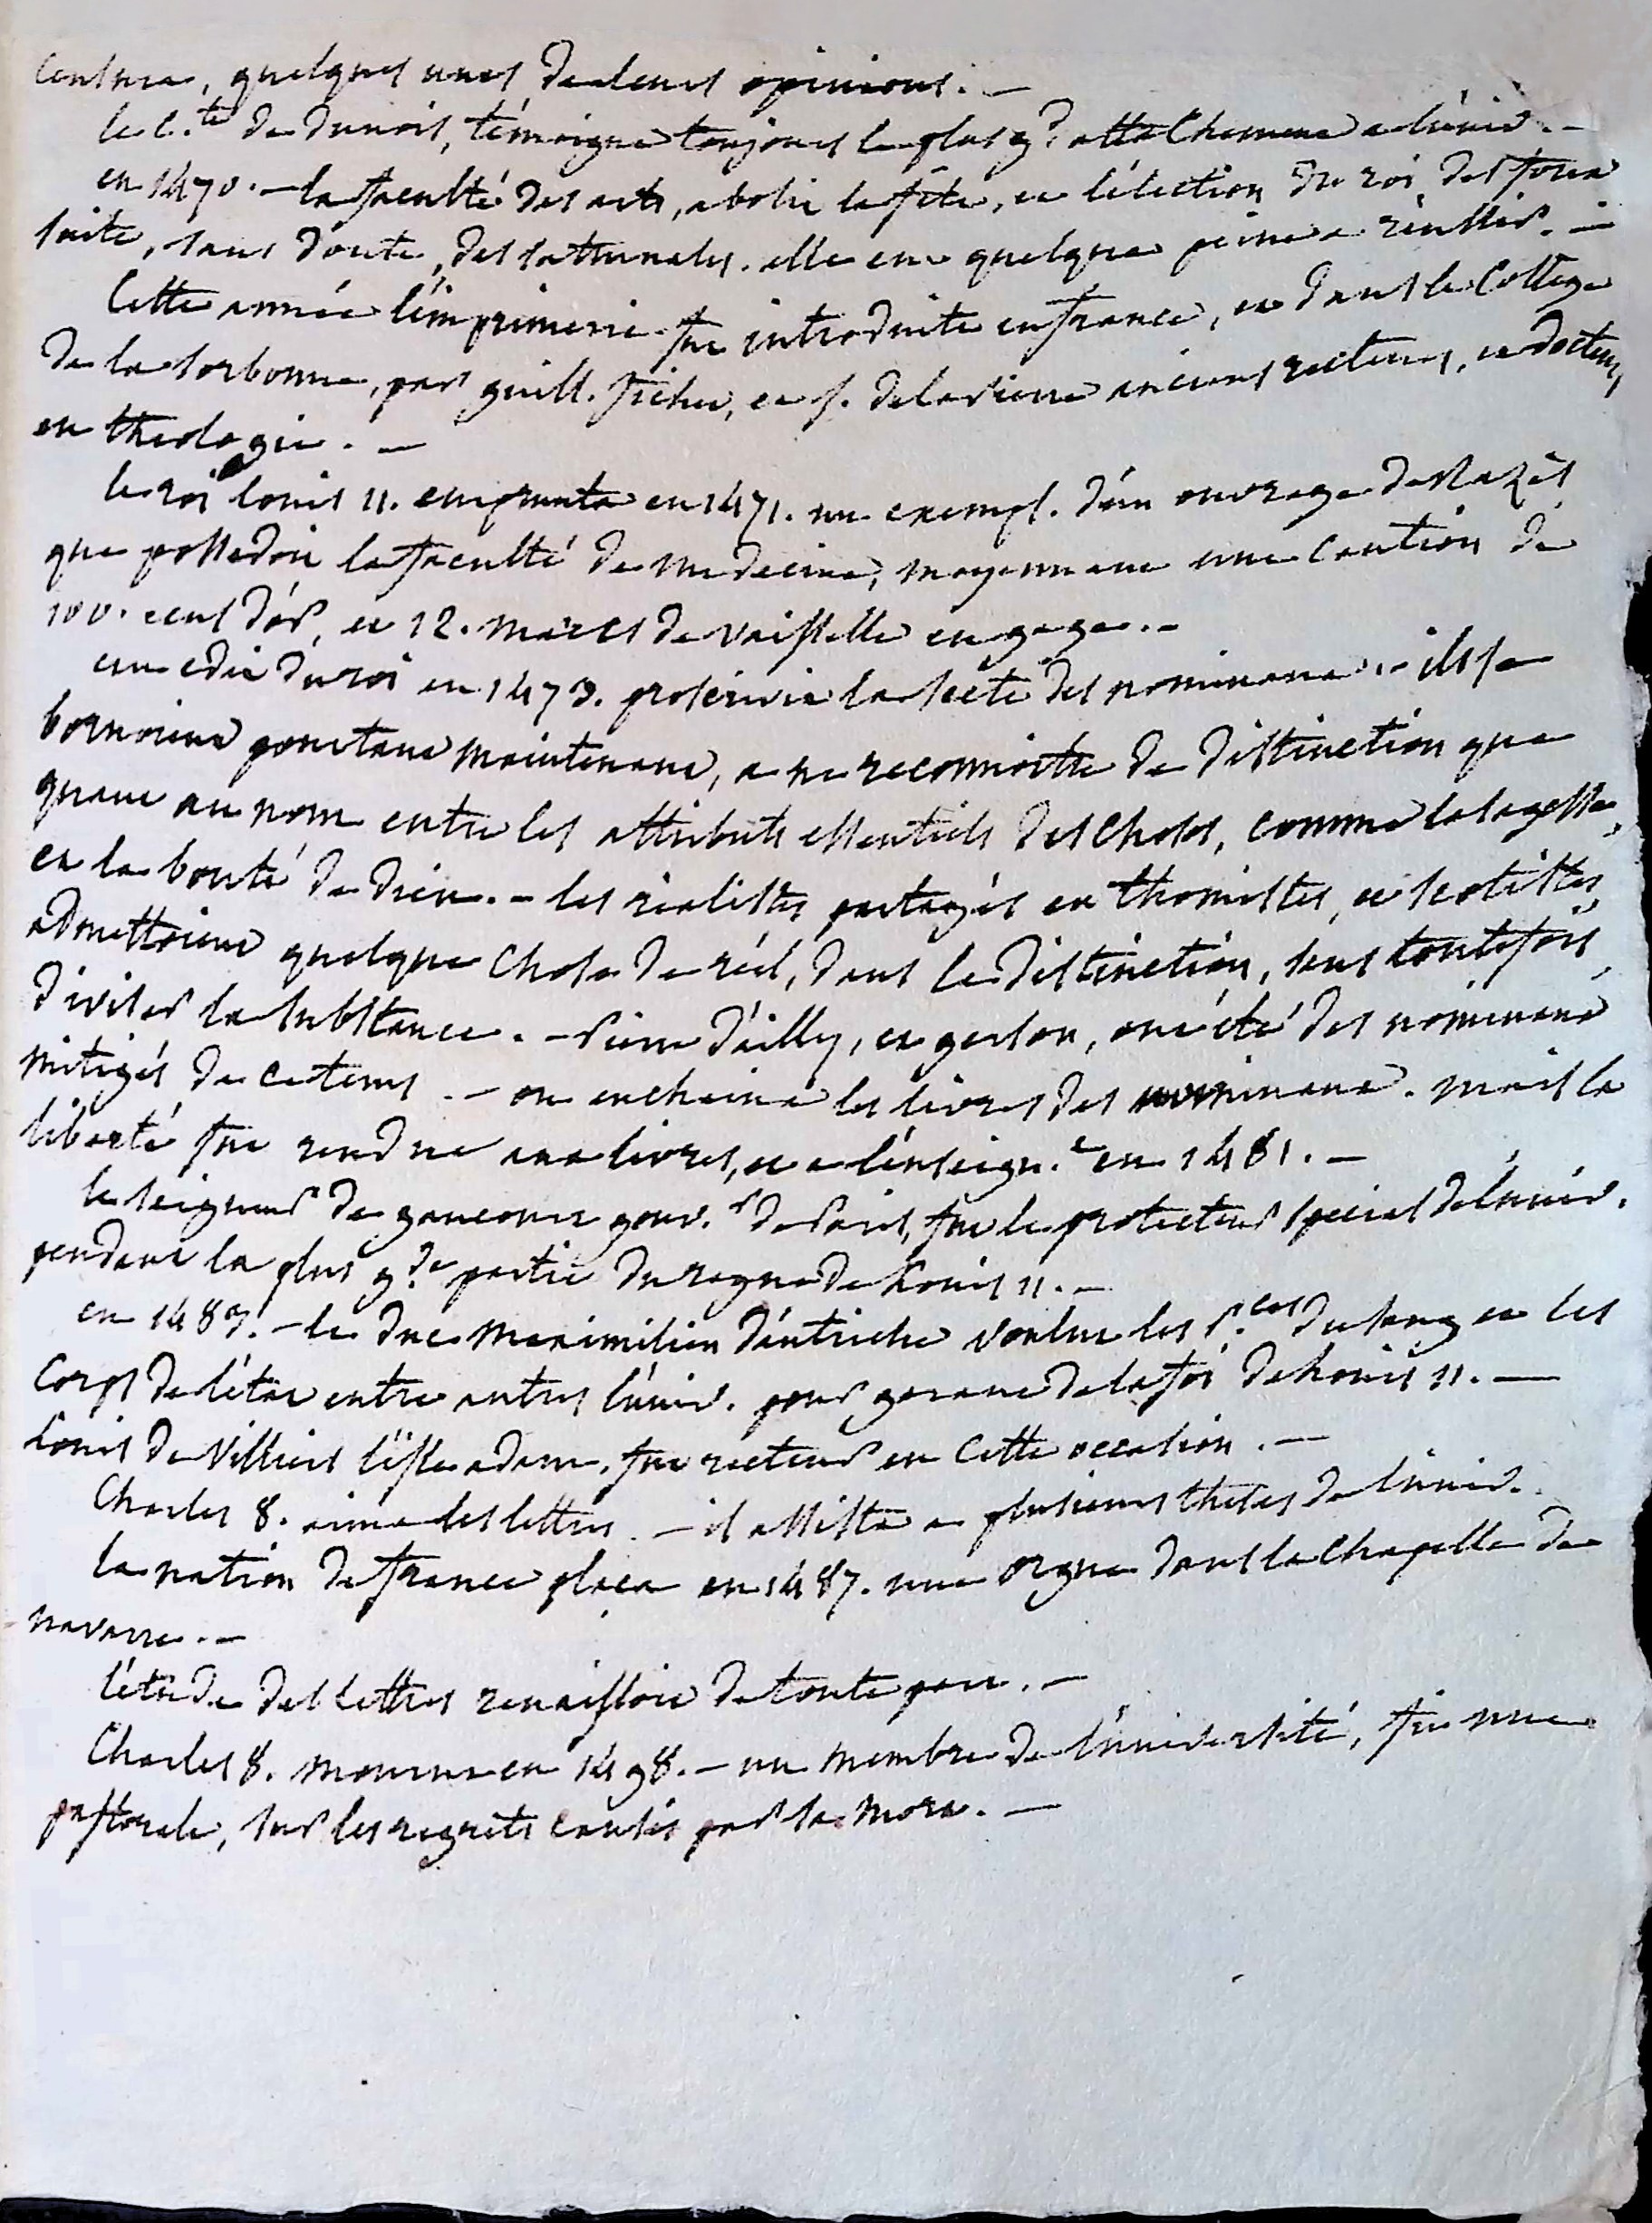 censura, quelques unes de leurs opinions. —
le c.te de dunois, témoigna toujours le plus gd attachement a l'univ. —
en 1470. — la faculté des arts, abolit la fête, et l'élection du roi des foux
suite, sans doute, des saturnales. elle eut quelque peine a réussir. —
Cette année l'imprimerie fut introduite en france, et dans le College
de la sorbonne, par guill. fichet, et j. de la pierre anciens recteurs, et docteurs
en theologie. —
le roi louis 11. emprunta en 1471. un exempl. d'un ouvrage de Razès
que possedoit la faculté de medecine, moyennant une caution de
100. ecus d'or, et 12. marcs de vaisselle en gage. —
un edit du roi en 1473. proscrivit la secte des nominaux. — ils se
bornoient pourtant maintenant, a ne reconnoitre de distinction que
quant au nom entre les attributs essentiels des choses, comme la sagesse,
et la bonté de dieu. — les réalistes partagés en thomistes, et scotistes,
admettoient quelque chose de réel, dans la distinction, sans toutefois,
diviser la substance. — Pierre d'ailly, et gerson, ont été des nominaux
mitigés de ce tems. — on enchaina les livres des nominaux. mais la
liberté fut rendue aux livres, et a l'enseign.t en 1481. —
le seigneur de gaucourt gouv.r de Paris, fut le protecteur special de l'univ.
pendant la plus g.de partie du regne de Louis 11. —
en 1482. — le duc maximilien d'autriche voulut les p.ces du sang et les
Corps de l'état entre autres l'univ. pour garant de la foi de Louis 11. —
Louis de Villiers l'isle adam, fut recteur en cette occasion. —
Charles 8. aima les lettres. — il assista a plusieurs theses de l'univ.
la nation de france plaça en 1487. une orgue dans la chapelle de
navarre. —
l'étude des lettres renaissoit de toute part. —
Charles 8. mourut en 1498. — un membre de l'université, fit une
pastorale, sur les regrets causés par sa mort. —